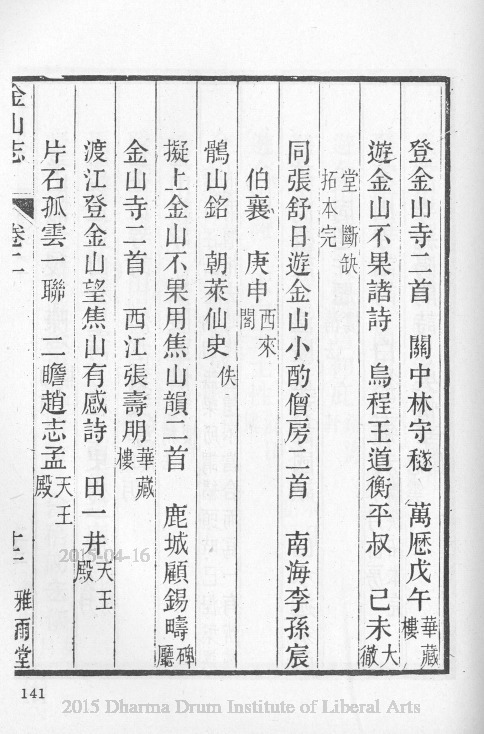 登金山寺二首 關中林守𥡴 萬厯戊午 華藏樓
遊金山不果諸詩 烏程王道衡平叔 己未 大徹
堂 斷缺 拓本完
同張舒日遊金山小酌僧房二首 南海李孫宸
伯襄 庚申 西來閣
鶺山銘 朝萊仙史 佚
擬上金山不果用焦山韻二首 鹿城顧錫疇 碑廳
金山寺二首 西江張壽朋 華藏樓
渡江登金山望焦山有感詩 田一井 天王殿
片石孤雲一聯 二瞻趙志孟 天王殿
金山志 卷二 十一 雅雨堂
141
2015-04-16
2015 Dharma Drum Institute of Liberal Arts